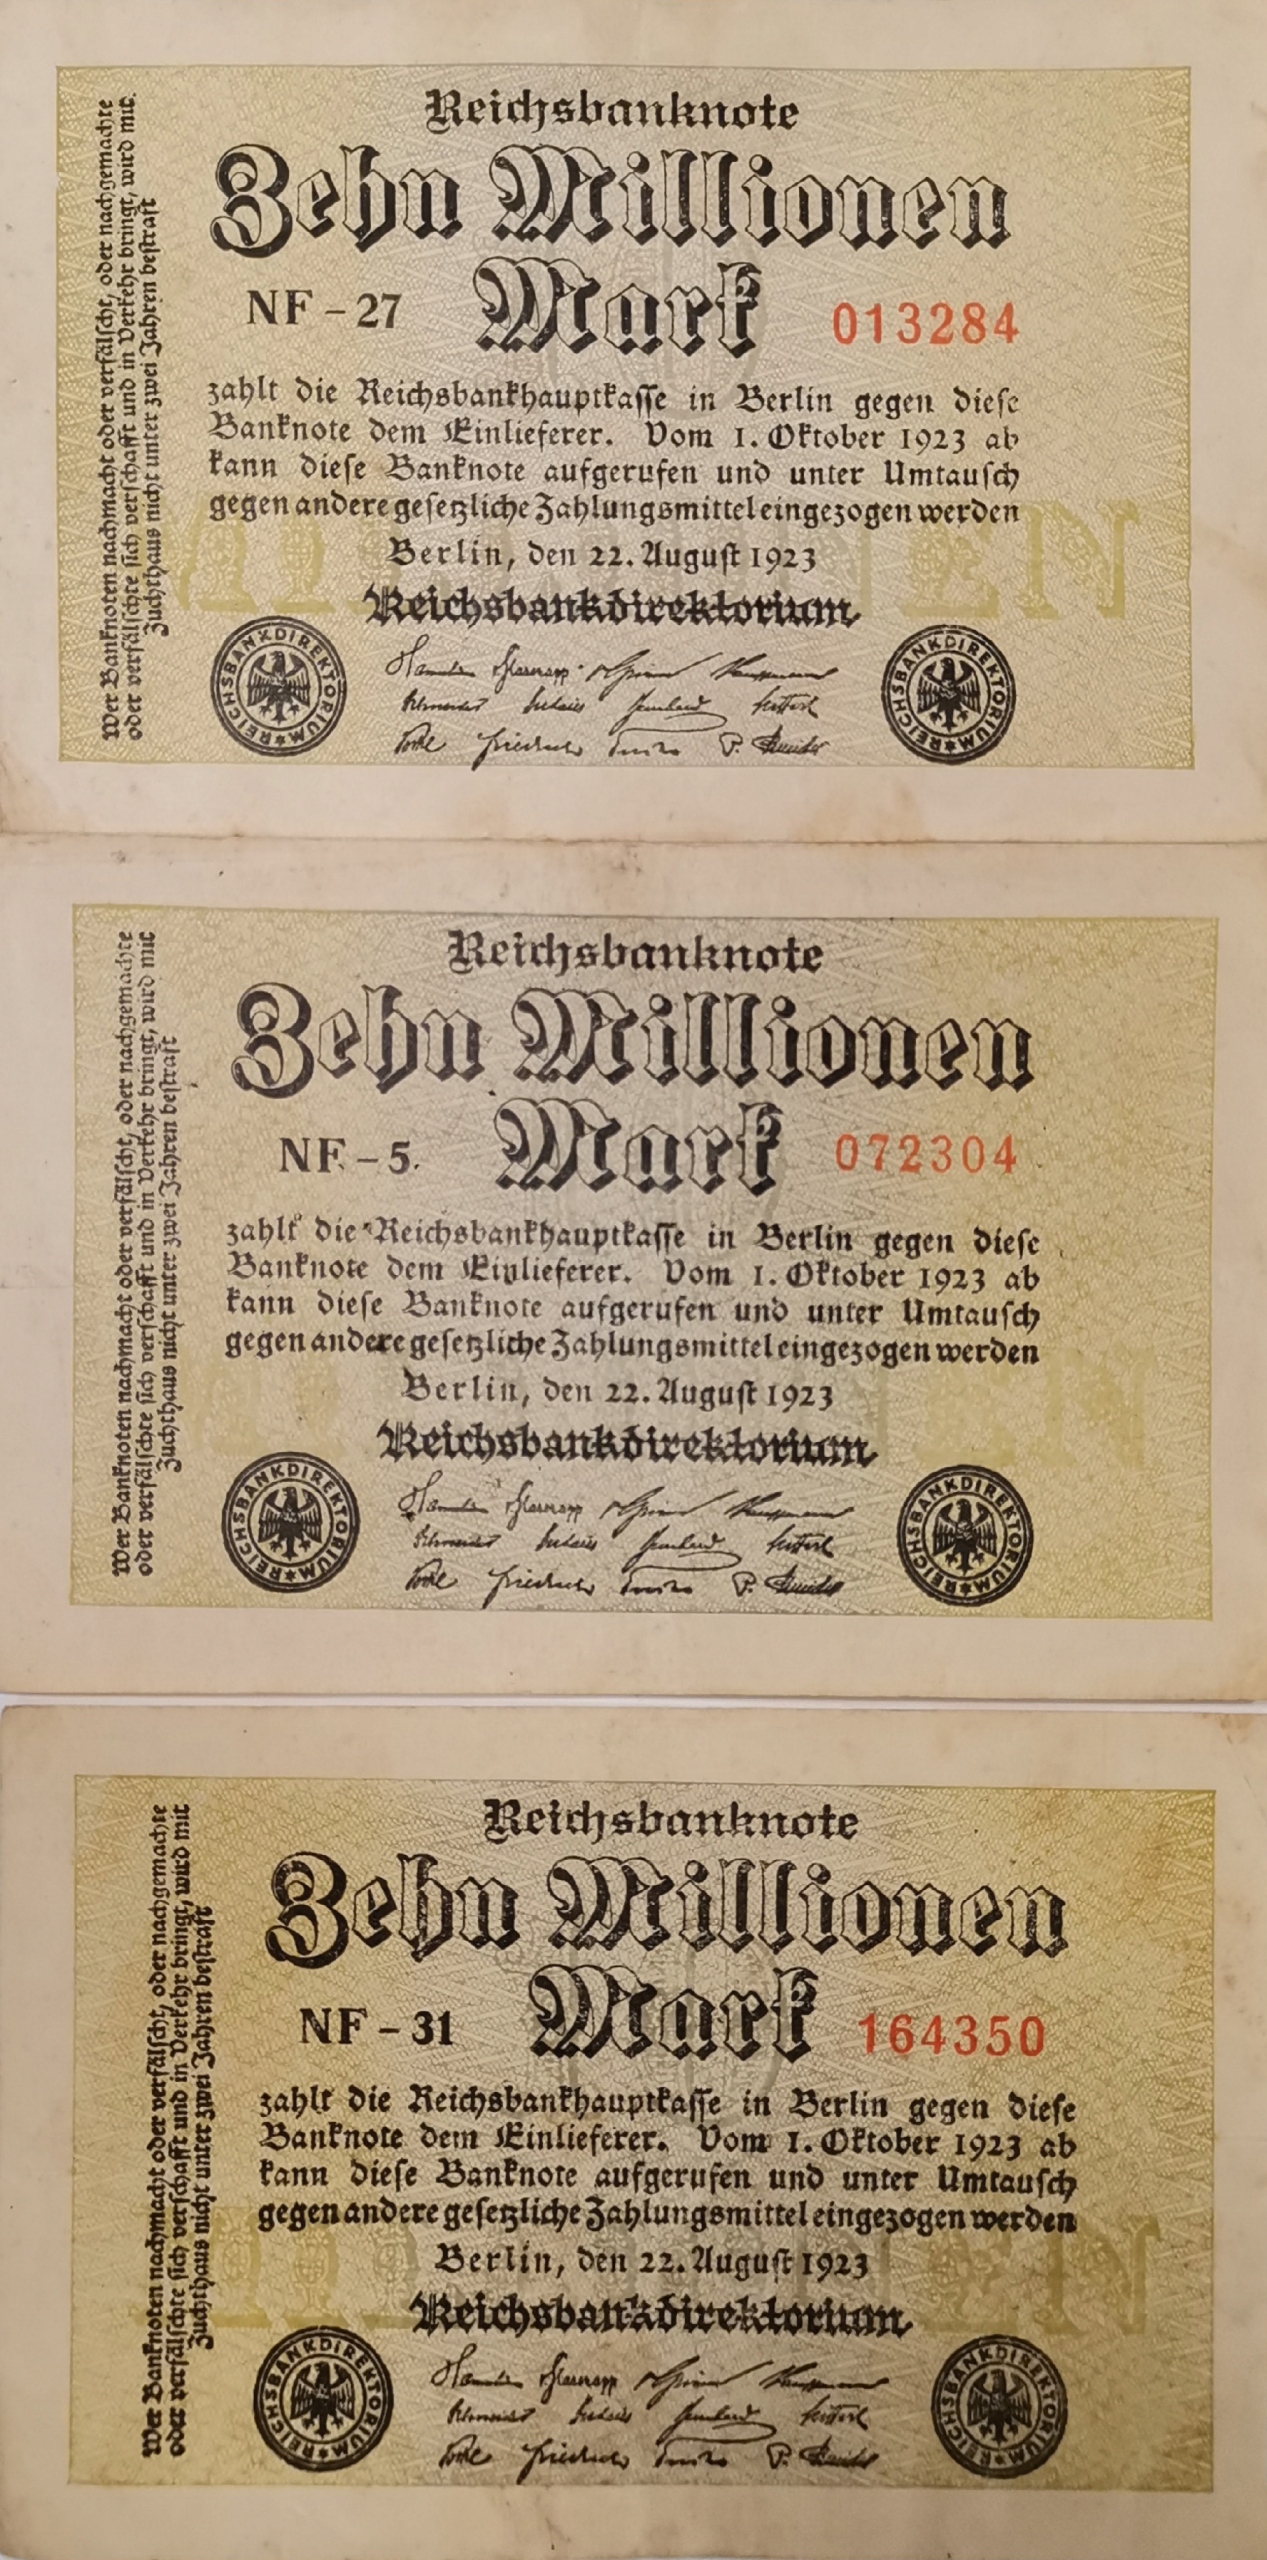 Reichsbanknote
Zehn Millionen
Mark
NF - 27
013284
zahlt die Reichsbankhauptkasse in Berlin gegen diese
Banknote dem Einlieferer. Vom 1. Oktober 1923 ab
kann diese Banknote aufgerufen und unter Umtausch
gegen andere gesetzliche Zahlungsmittel eingezogen werden
Berlin, den 22. August 1923
Reichsbankdirektorium
REICHSBANKDIREKTORIUM
REICHSBANKDIREKTORIUM
Wer Banknoten nachmacht oder verfälscht, oder nachgemachte
oder verfälschte sich verschafft und in Verkehr bringt, wird mit
Zuchthaus nicht unter zwei Jahren bestraft
Reichsbanknote
Zehn Millionen
Mark
NF - 5
072304
zahlt die Reichsbankhauptkasse in Berlin gegen diese
Banknote dem Einlieferer. Vom 1. Oktober 1923 ab
kann diese Banknote aufgerufen und unter Umtausch
gegen andere gesetzliche Zahlungsmittel eingezogen werden
Berlin, den 22. August 1923
Reichsbankdirektorium
REICHSBANKDIREKTORIUM
REICHSBANKDIREKTORIUM
Wer Banknoten nachmacht oder verfälscht, oder nachgemachte
oder verfälschte sich verschafft und in Verkehr bringt, wird mit
Zuchthaus nicht unter zwei Jahren bestraft
Reichsbanknote
Zehn Millionen
Mark
NF - 31
164350
zahlt die Reichsbankhauptkasse in Berlin gegen diese
Banknote dem Einlieferer. Vom 1. Oktober 1923 ab
kann diese Banknote aufgerufen und unter Umtausch
gegen andere gesetzliche Zahlungsmittel eingezogen werden
Berlin, den 22. August 1923
Reichsbankdirektorium
REICHSBANKDIREKTORIUM
REICHSBANKDIREKTORIUM
Wer Banknoten nachmacht oder verfälscht, oder nachgemachte
oder verfälschte sich verschafft und in Verkehr bringt, wird mit
Zuchthaus nicht unter zwei Jahren bestraft